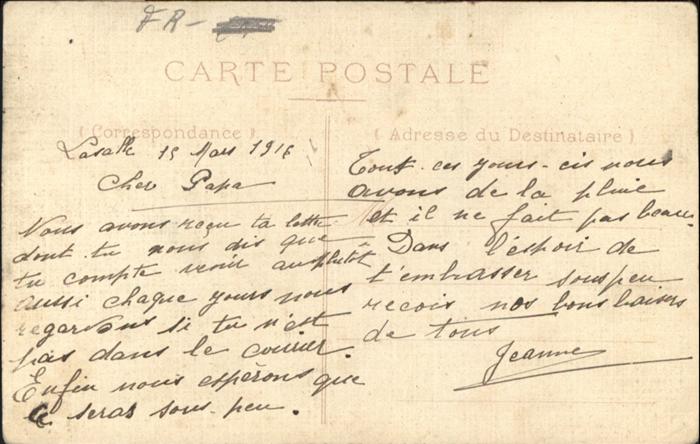 FR -
CARTE POSTALE
(Correspondance)
Lasalle 15 Mars 1916
Cher Papa
Nous avons reçu ta lettre
dont tu nous dis que
tu compte venir au plutôt
aussi chaque yours nous
regardons si tu n'est
pas dans le courrier.
Enfin nous espérons que
ce seras sous-peu.
(Adresse du Destinataire)
Tout-ces yours-cis nous
avons de la pluie
et il ne fait pas beau.
Dans l'éspoir de
t'embrasser sous peu
recois nos bons baisers
de tous
Jeanne